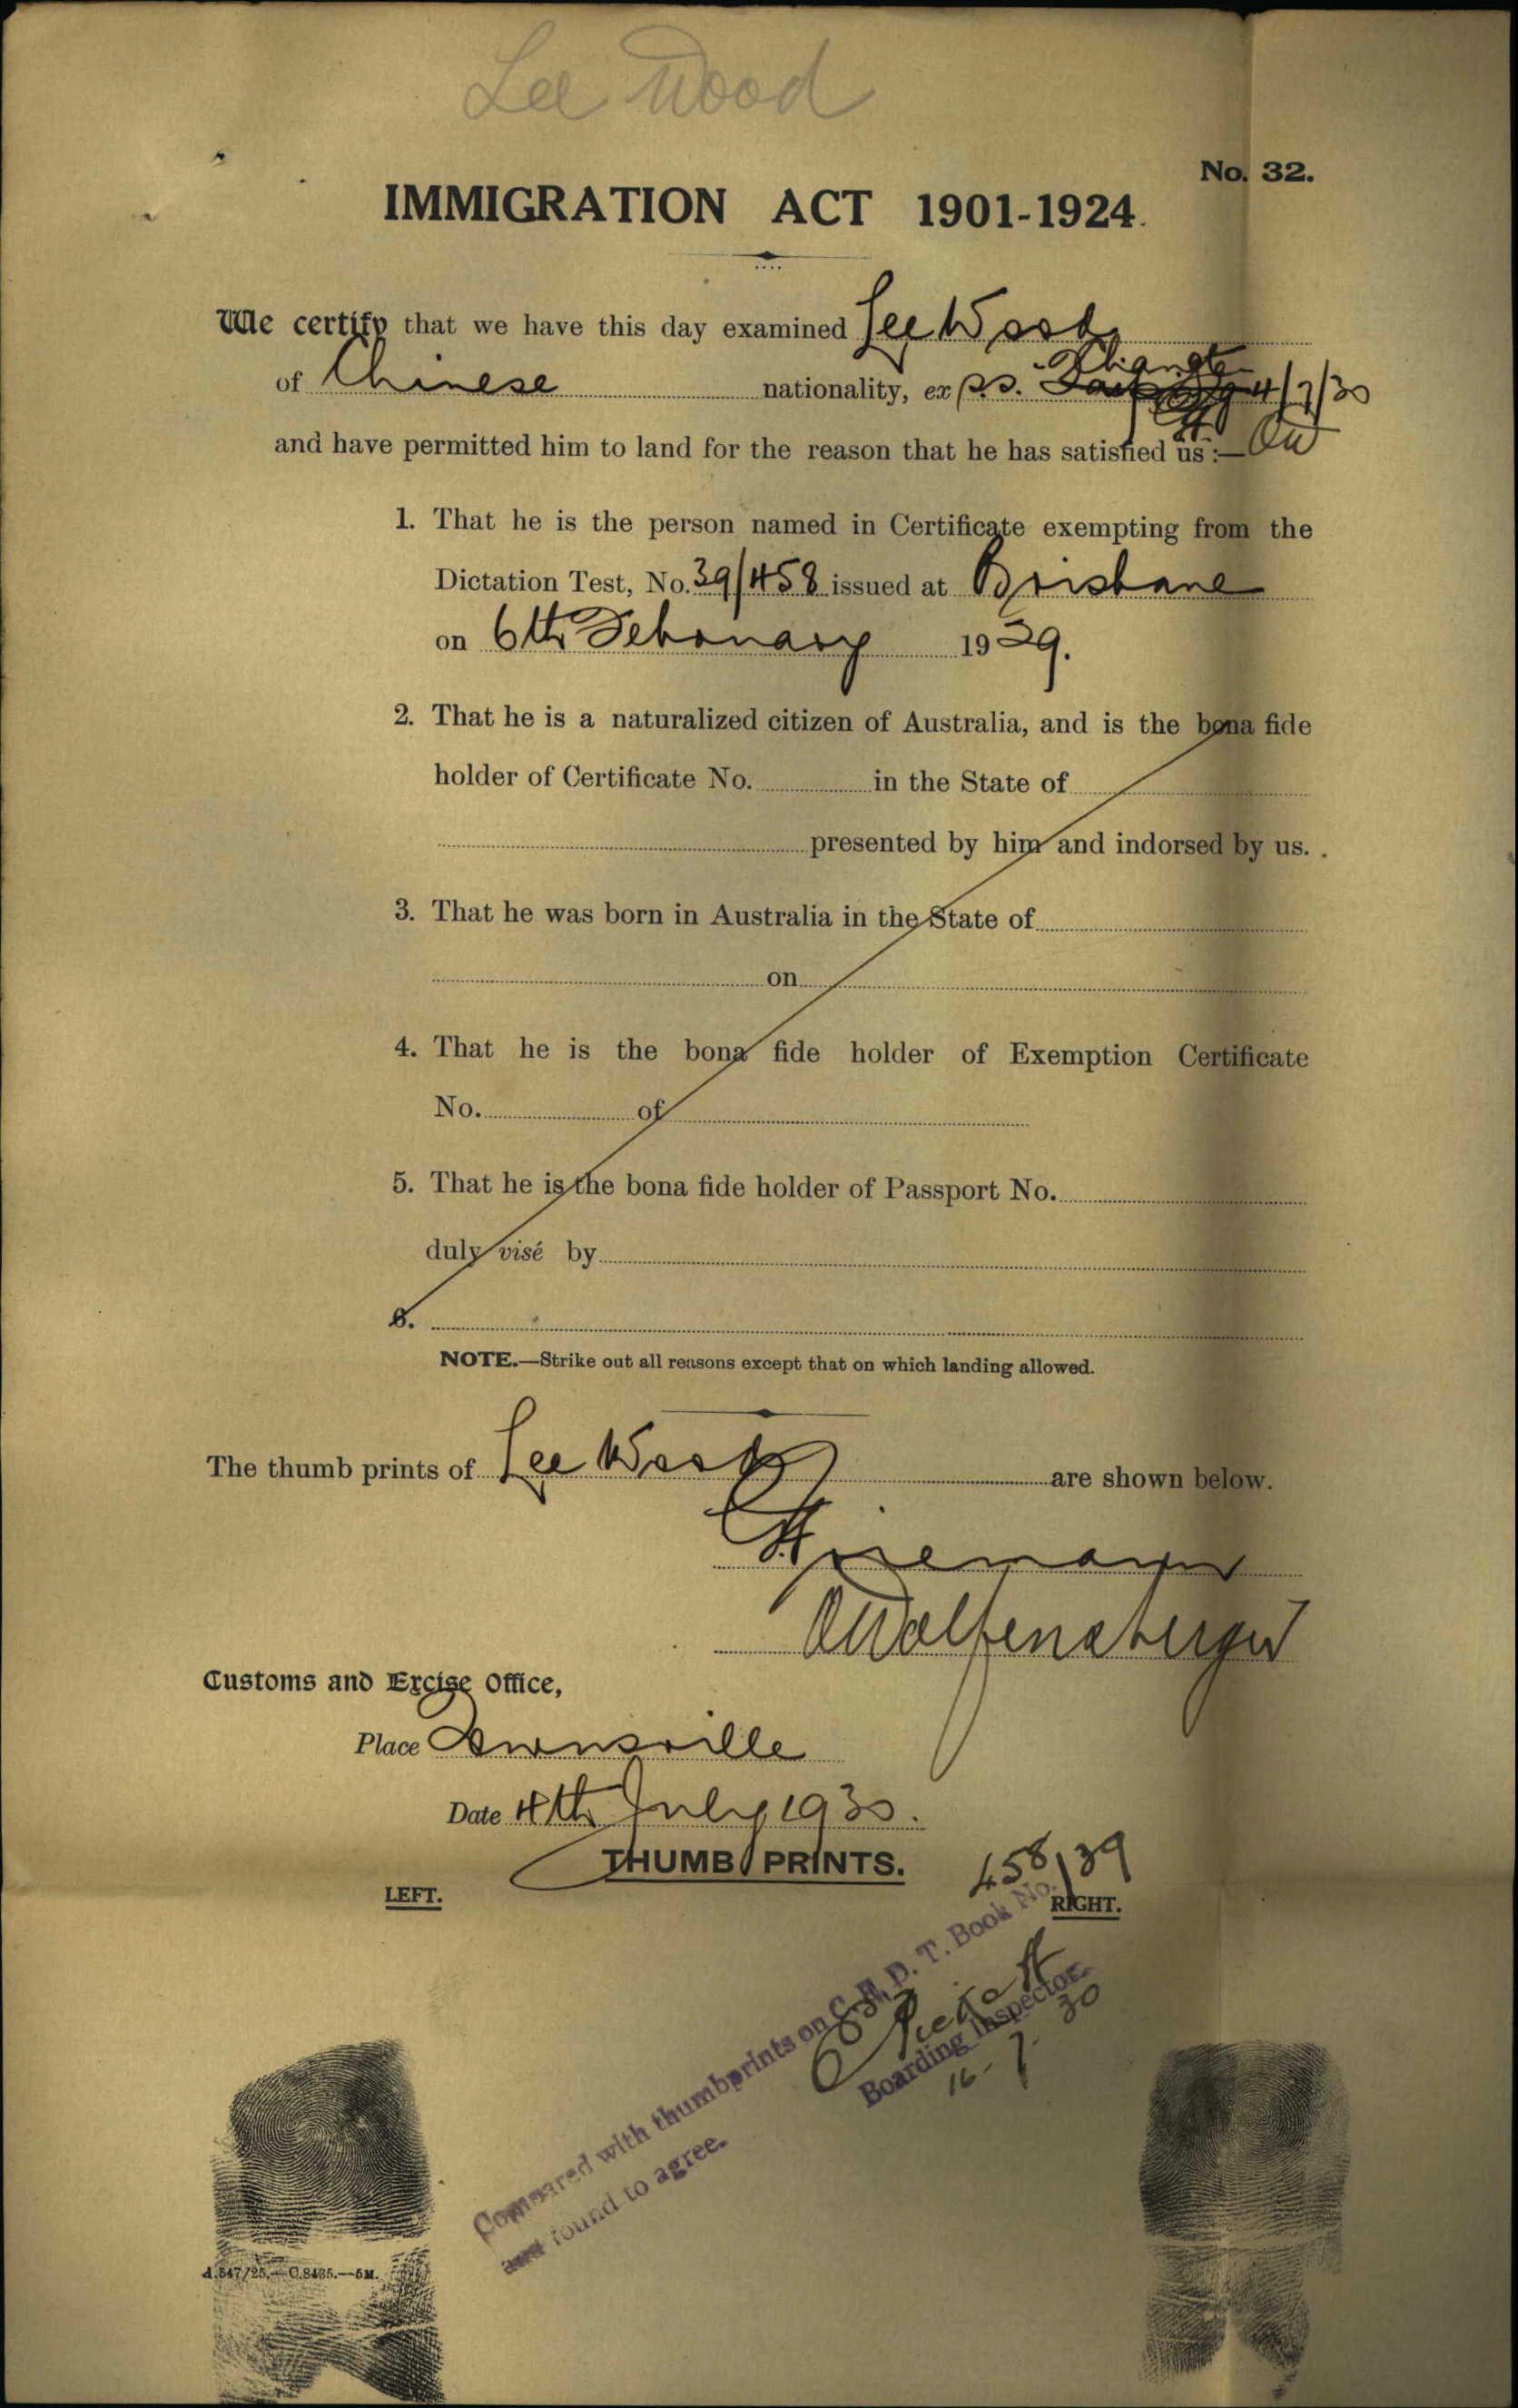 Lee Wood
No. 32.
IMMIGRATION ACT 1901-1924.
We certify that we have this day examined Lee Wood
of Chinese nationality, ex s.s. Changte 4/7/30
and have permitted him to land for the reason that he has satisfied us :—
1. That he is the person named in Certificate exempting from the
Dictation Test, No. 39/458 issued at Brisbane
on 6th February 1929.
2. That he is a naturalized citizen of Australia, and is the bona fide
holder of Certificate No. in the State of
presented by him and indorsed by us.
3. That he was born in Australia in the State of
on
4. That he is the bona fide holder of Exemption Certificate
No. of
5. That he is the bona fide holder of Passport No.
duly visé by
6.
NOTE.—Strike out all reasons except that on which landing allowed.
The thumb prints of Lee Wood are shown below.
Wolfensberger
Customs and Excise Office,
Place Townsville
Date 4th July 1930.
THUMB PRINTS.
458/39
LEFT.
RIGHT.
Compared with thumbprints on C.E.D.T. Book No.
and found to agree.
Boarding Inspector.
16-7-30
A.547/25.—C.8435.—5M.